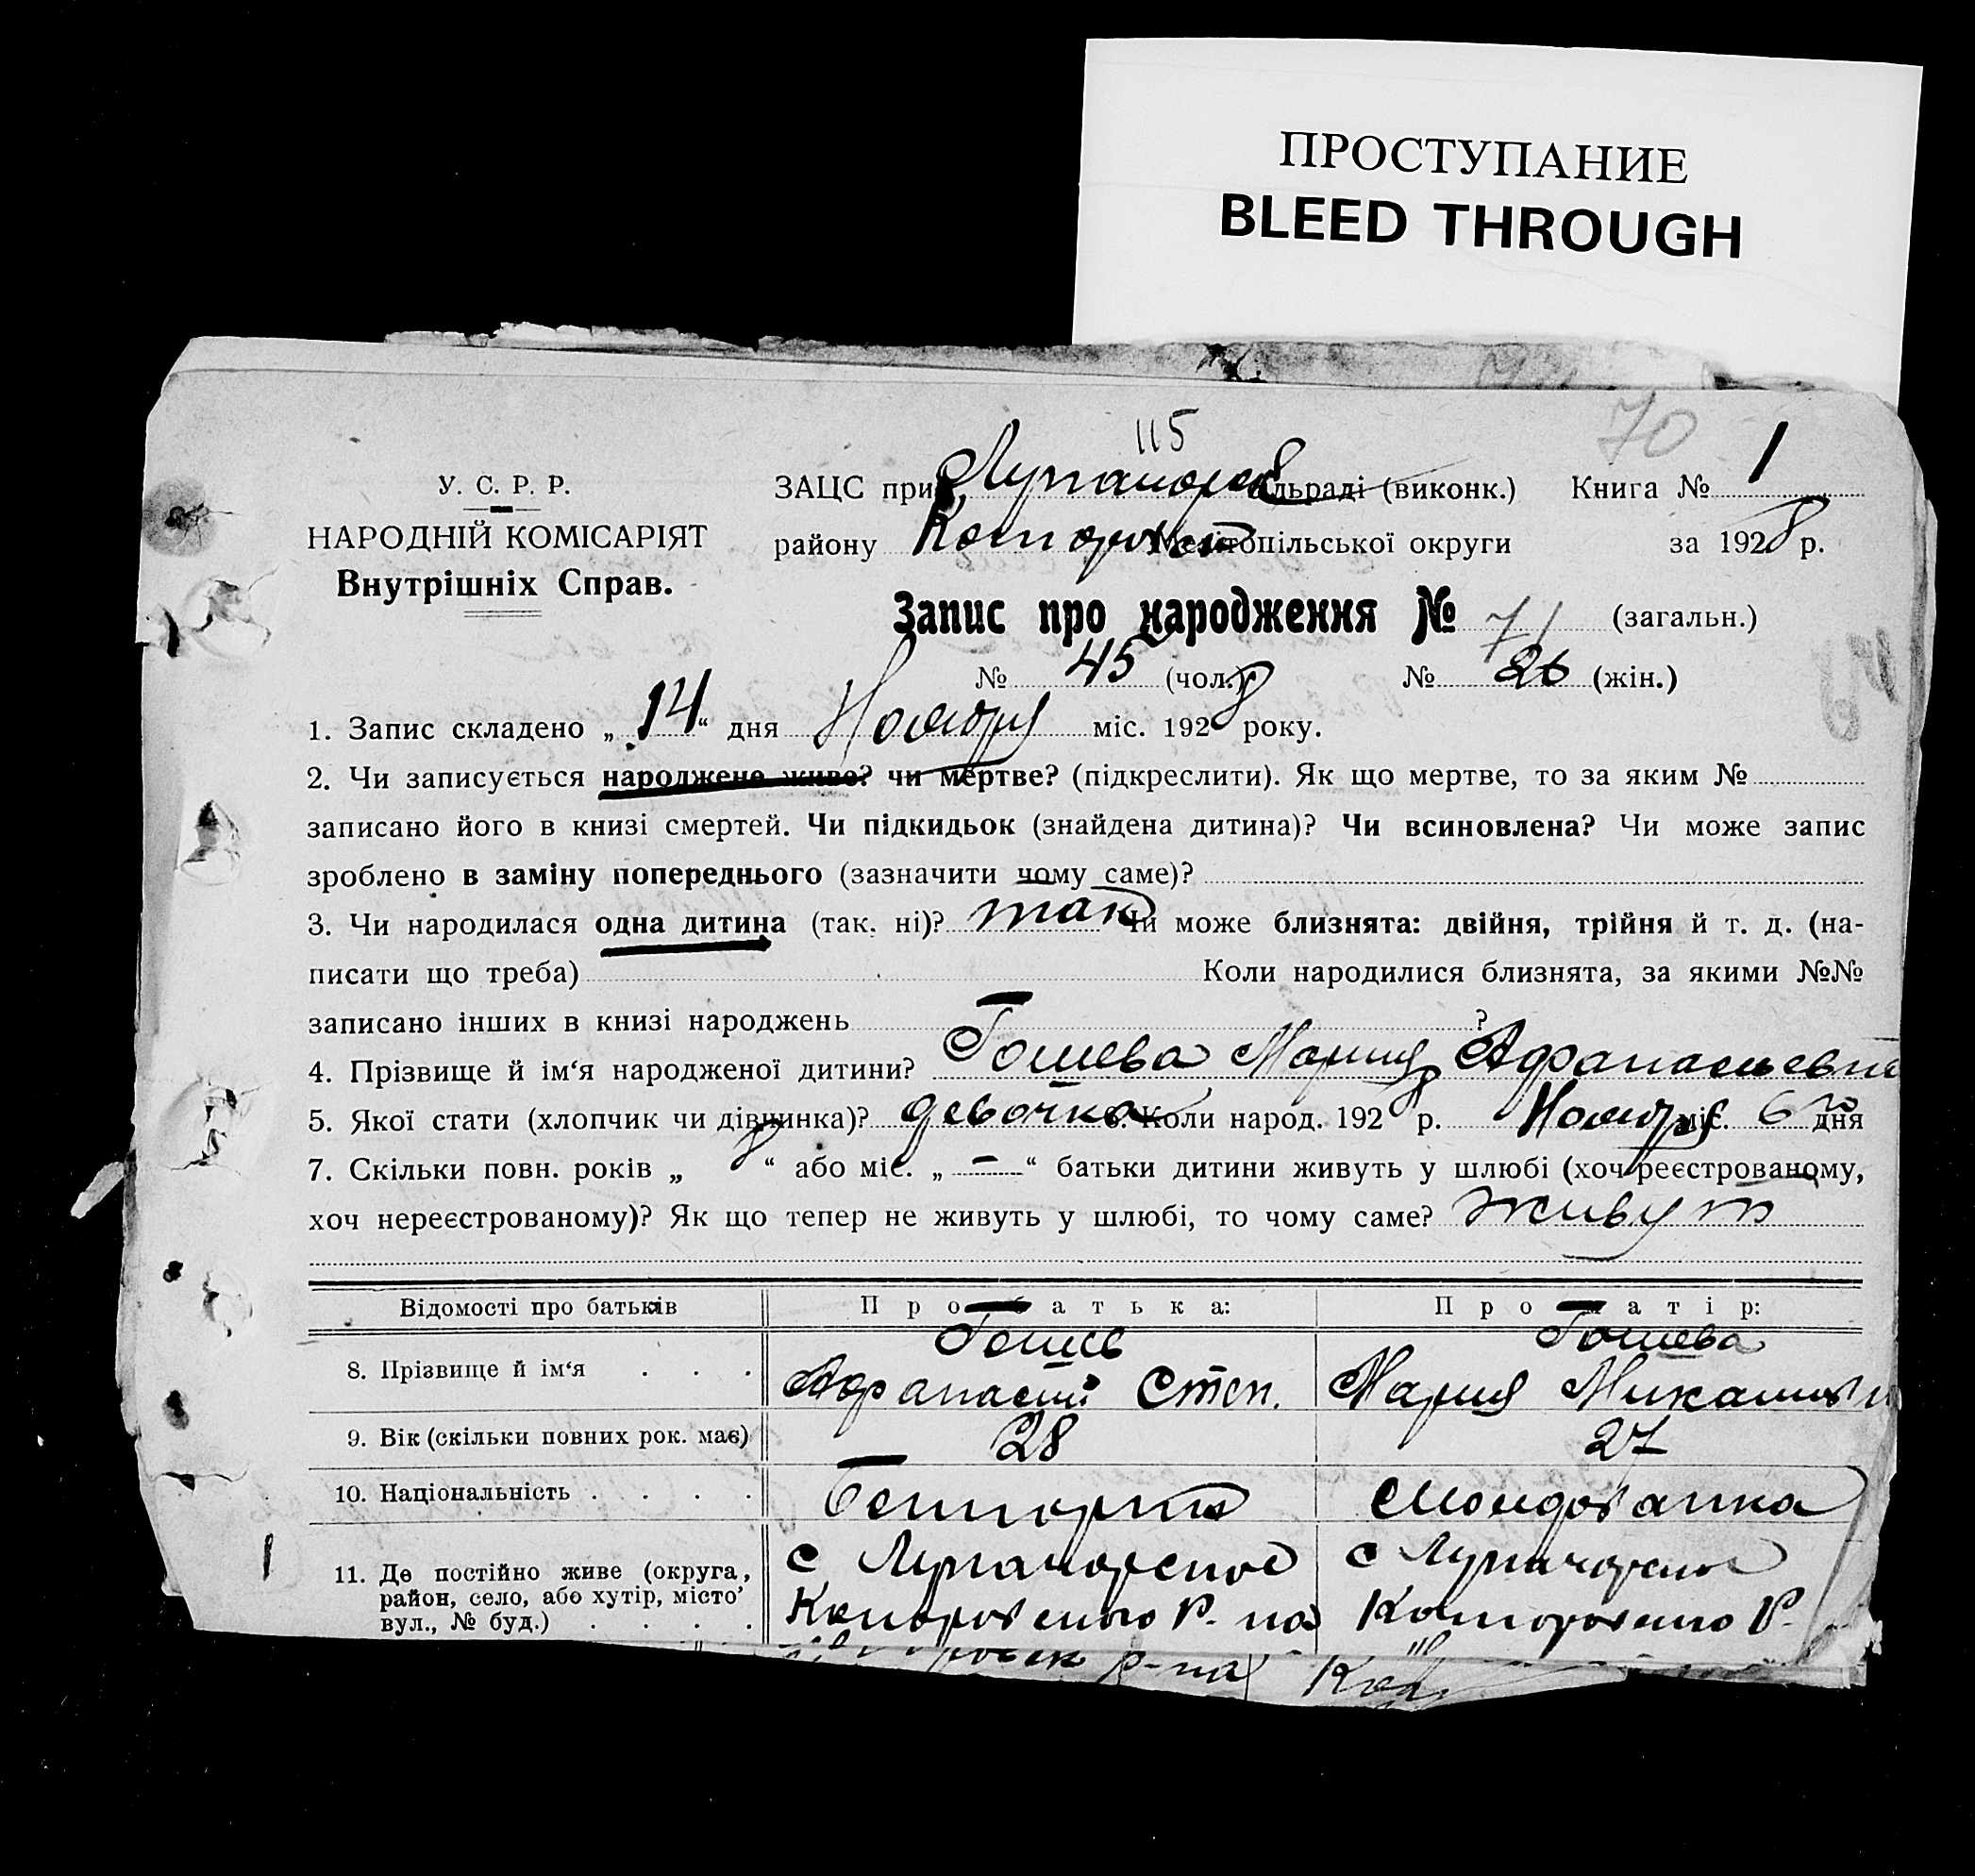 ПРОСТУПАНИЕ
BLEED THROUGH
115
70
У. С. Р. Р.
НАРОДНІЙ КОМІСАРІЯТ
Внутрішніх Справ.
ЗАЦС при льраді (виконк.) Книга № 1
району Мелітопільської округи за 1928 р.
Запис про народження № 71 (загальн.)
№ 45 (чол.) № 26 (жін.)
1. Запис складено „14“ дня Ноября міс. 1928 року.
2. Чи записується народжене живе? чи мертве? (підкреслити). Як що мертве, то за яким №
записано його в книзі смертей. Чи підкидьок (знайдена дитина)? Чи всиновлена? Чи може запис
зроблено в заміну попереднього (зазначити чому саме)?
3. Чи народилася одна дитина (так, ні)? так Чи може близнята: двійня, трійня й т. д. (на-
писати що треба) Коли народилися близнята, за якими №№
записано інших в книзі народжень ?
4. Прізвище й ім‘я народженої дитини? Гошева Мария Афанасьевна
5. Якої стати (хлопчик чи дівчинка)? девочка 6. Коли народ. 1928 р. Ноября міс. 6 го дня
7. Скільки повн. років „ 8 “ або міс. „ – “ батьки дитини живуть у шлюбі (хоч реєстрованому,
хоч нереєстрованому)? Як що тепер не живуть у шлюбі, то чому саме? живут
Відомості про батьків Про батька: Про матір:
8. Прізвище й ім‘я . . . Гошев Афанасий Степ. Гошева Мария
9. Вік (скільки повних рок. має) 28 27
10. Національність . . . . Молдованка
11. Де постійно живе (округа,
район, село, або хутір, місто’
вул., № буд.) . . . .